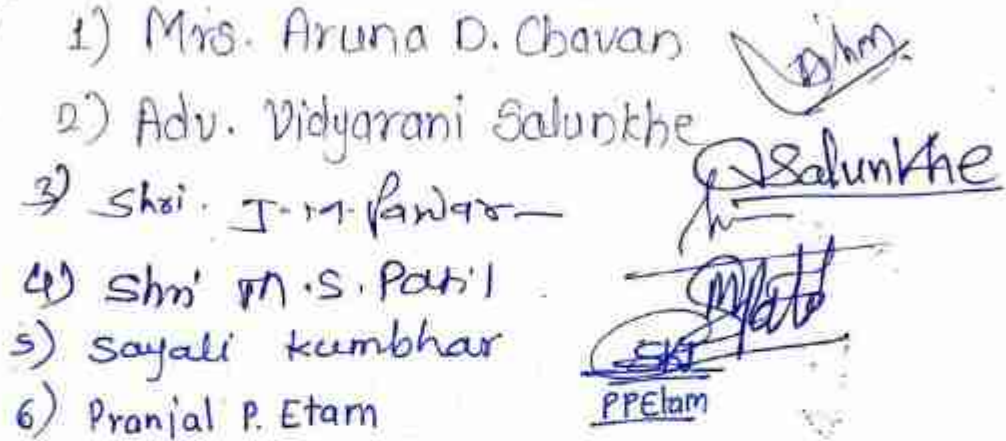 1) Mrs. Aruna D. Chavan
2) Adv. Vidyarani Salunkhe Salunkhe
3) Shri. J. M. Pawar
4) Shri M. S. Patil MPatil
5) Sayali kumbhar SKJ
6) Pranjal P. Etam PPEtam